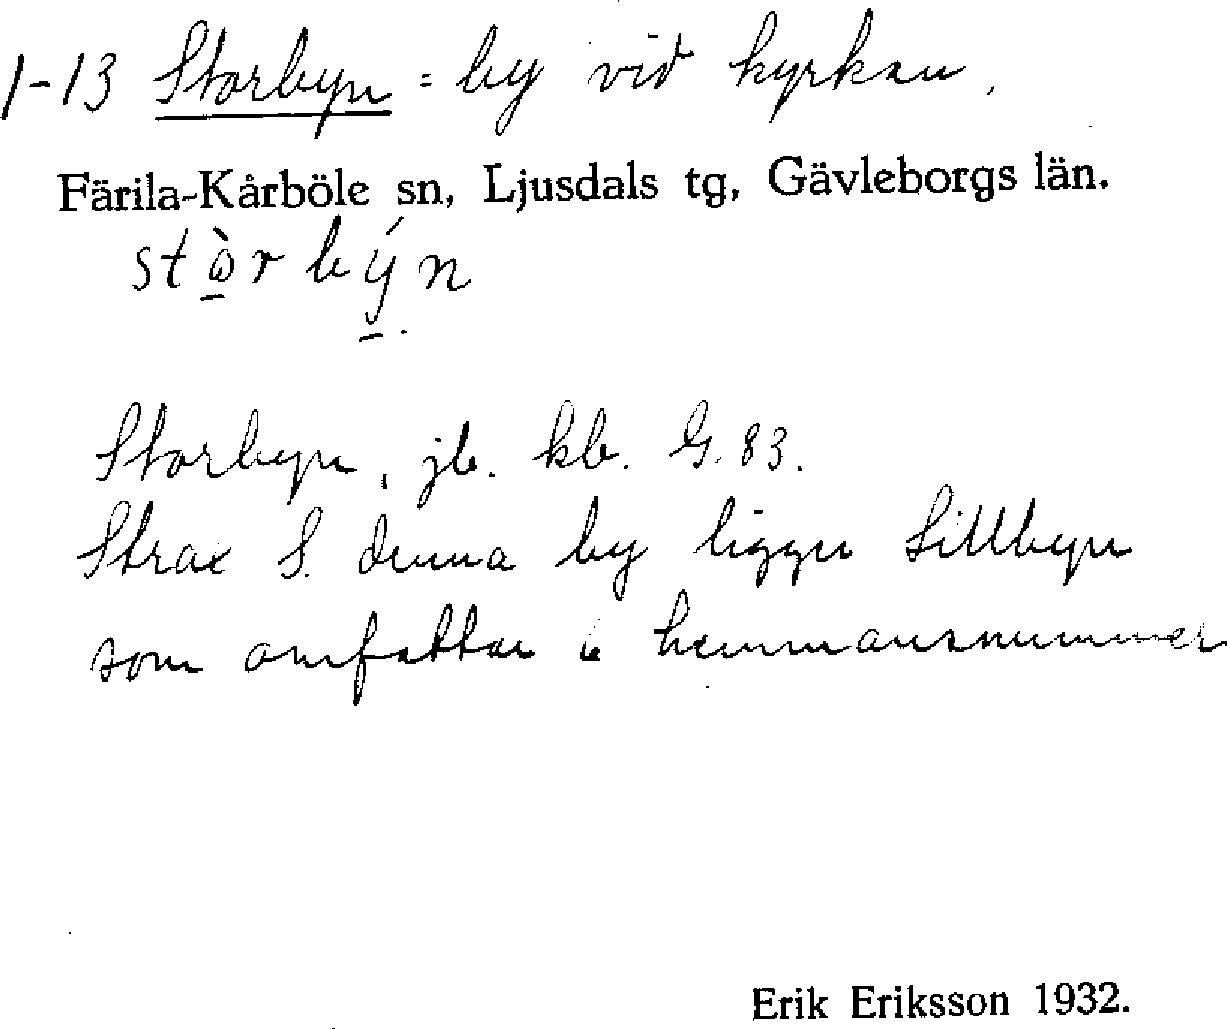 1-13 Storbyn = by vid kyrkan.
Färila-Kårböle sn, Ljusdals tg, Gävleborgs län.
stòrbýn
Storbyn, jb. kb. G. 83.
Strax S. denna by ligger Lillbyn
som omfattar 6 hemmansnummer
Erik Eriksson 1932.